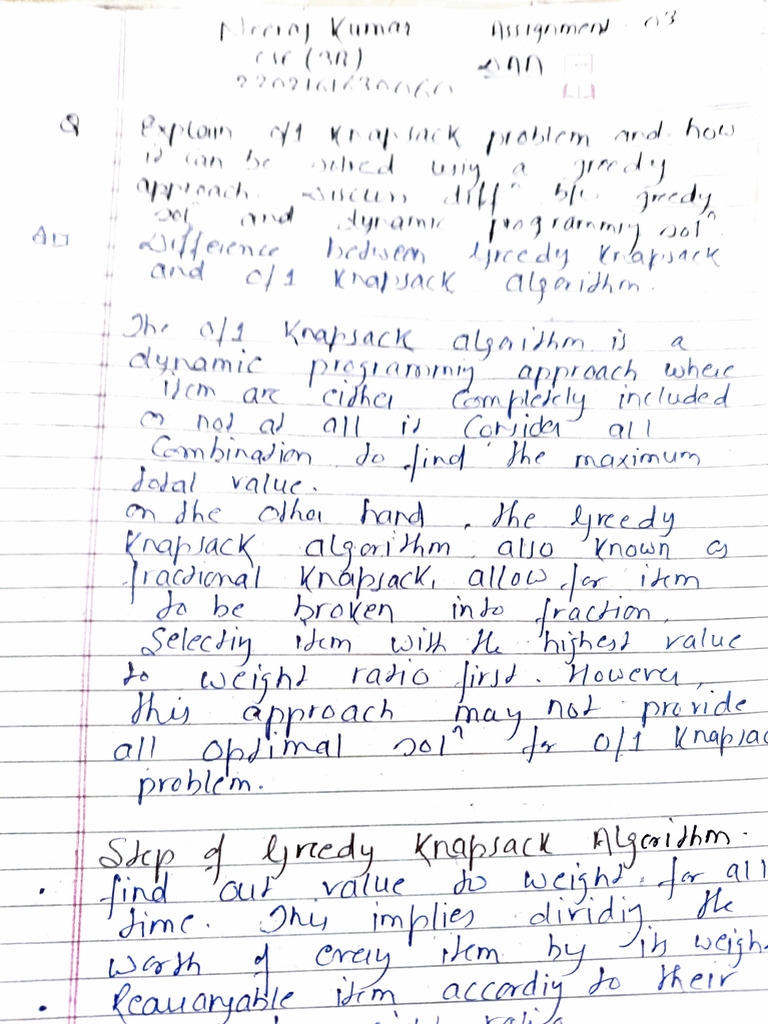 Neeraj Kumar Assignment - 03
CSE (3B) DAA
Q Explain 0/1 Knapsack problem and how
it can be solved using a greedy
approach. Discuss diffn b/w greedy
soln and dynamic programming soln
Difference between Greedy Knapsack
and 0/1 Knapsack algorithm.
The 0/1 Knapsack algorithm is a
dynamic programming approach where
item are either completely included
or not at all it consider all
Combination to find the maximum
total value.
on the other hand, the Greedy
Knapsack algorithm also known as
fractional Knapsack, allow for item
to be broken into fraction,
Selecting item with the highest value
to weight ratio first. However,
this approach may not provide
all optimal soln for 0/1 Knapsac
problem.
Step of Greedy Knapsack Algorithm.
• find out value to weight for all
time. This implies dividing the
worth of every item by its weigh
• item according to their
ratio